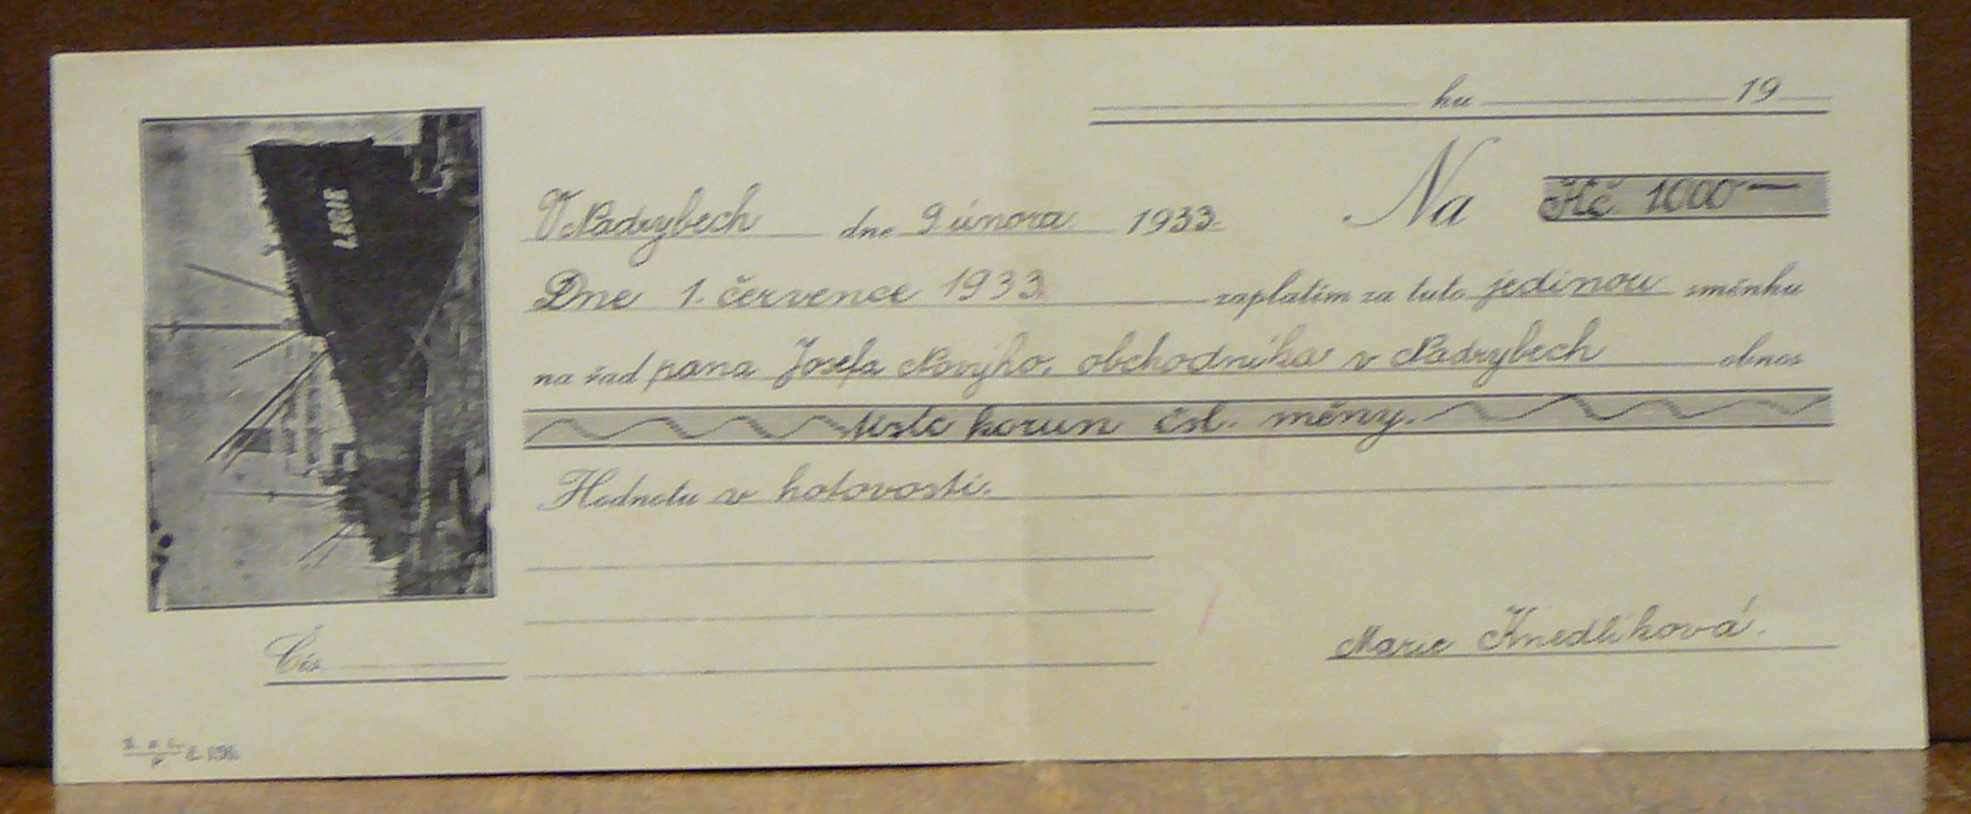 LEGIE
ku 19
Na Kč 1000—
V Nadrybech dne 9 února 1933
Dne 1. července 1933 zaplatím za tuto jedinou směnku
na řad pana Josefa Nového, obchodníka v Nadrybech obnos
korun čsl. měny.
Hodnotu v hotovosti.
Marie Knedlíková.
Čís.